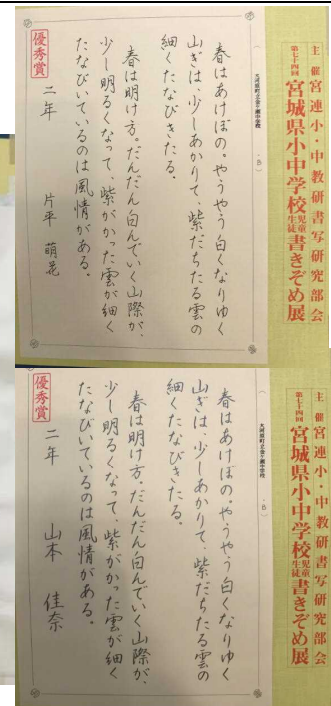 主催 宮連小・中教研書写研究部会
第七十四回 宮城県小中学校児童生徒書きぞめ展
大河原町立金ケ瀬中学校
春はあけぼの。やうやう白くなりゆく
山ぎは、少しあかりて、紫だちたる雲の
細くたなびきたる。
春は明け方。だんだん白んでいく山際が、
少し明るくなって、紫がかった雲が細く
たなびいているのは風情がある。
優秀賞
二年 片平 萌花
主催 宮連小・中教研書写研究部会
第七十四回 宮城県小中学校児童生徒書きぞめ展
大河原町立金ケ瀬中学校
春はあけぼの。やうやう白くなりゆく
山ぎは、少しあかりて、紫だちたる雲の
細くたなびきたる。
春は明け方。だんだん白んでいく山際が、
少し明るくなって、紫がかった雲が細く
たなびいているのは風情がある。
優秀賞
二年 山本 佳奈